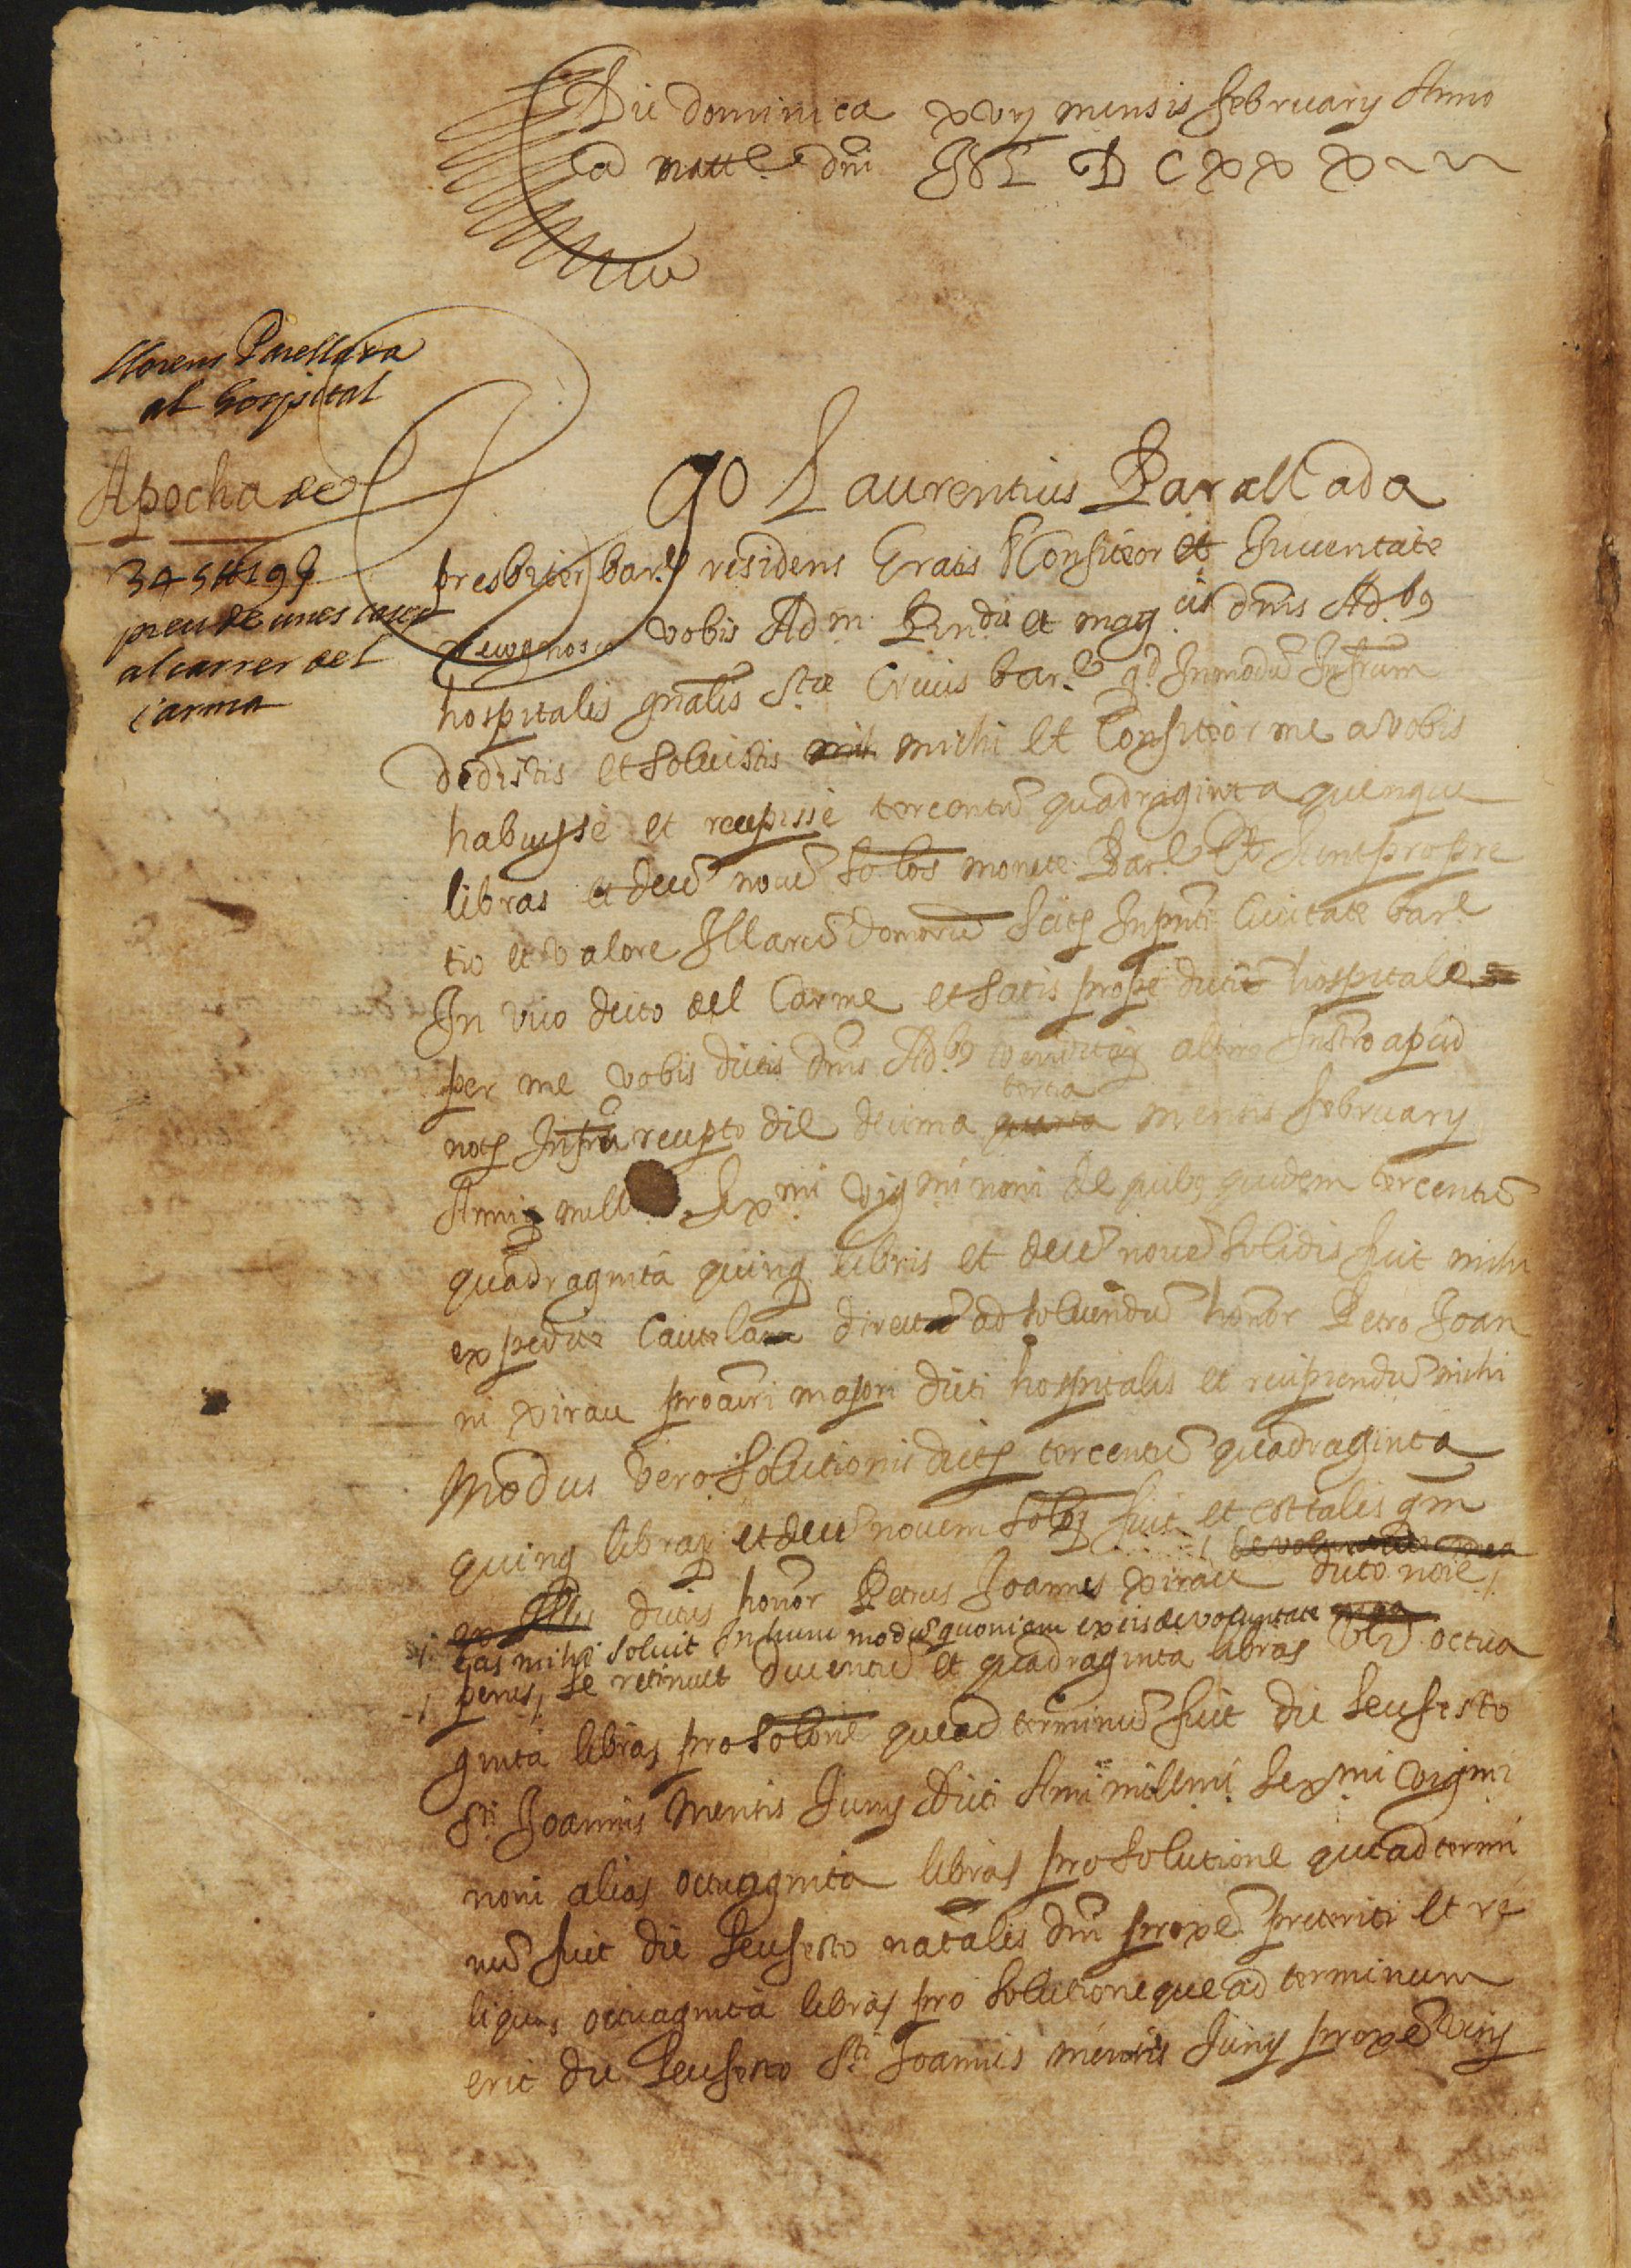 Die dominica xvij mensis february Anno
a natt.e dni M D C X X X
Llorens Parellada
al hospital
Apocha de
345 ll 19 s
preu de unes cases
al carrer del
Carma
Ego Laurentius Parallada
presbiter bar.e residens Gratis Confiteor et Iuventate
recognosco vobis Adm. Rndis et mag.cis dnis Ad.bus
hospitalis gnalis S.te Crucis bar.e qd Inmodu Infrum
dedistis et soluistis mihi et Confiteor me a vobis
habuysse et recepisse tercentu quadraginta quinque
libras et dece noue solos monete Bar.e Et sunt pro pre
tio et valore Illaru domoru sitis Inpnti Ciuitate bar.e
In vico dicto del Carme et satis prope dictu hospitale
per me vobis dictis dnis Ad.bus venditis Instro apud
nots Infru recepto die decima tercia mensis february
Anni mill Sex.mi vig.mi noni de quibus quidem tercentu
quadraginta quinq libris et dece noue solidis fuit mihi
expedita Cautela directa ad soluendu honor Petro Joan
ni xirau procuri majori dicti hospitalis et recipiendu mihi
Modus vero Solutionis dictis tercentu quadraginta
quinq libras et dece nouem solos fuit et est talis qm
dictus honor Petrus Joannes xirau dicto noie
eas mihi soluit In hunc modu quoniam ex eis de voluntate mea
penes se retinuit ducentu et quadraginta libras vlz octua
ginta libras pro solone que ad terminu fuit die seu festo
S.ti Joannis Mensis Juny dicti Anni millmi sex.mi vigmi
noni alias octuaginta libras pro solutione que ad termi
nu fuit die seu festo natalis dni proxe preteriti et re
liquas octuaginta libras pro solutione que ad terminum
erit die seu festo S.ti Joannis mensis Juny proxe